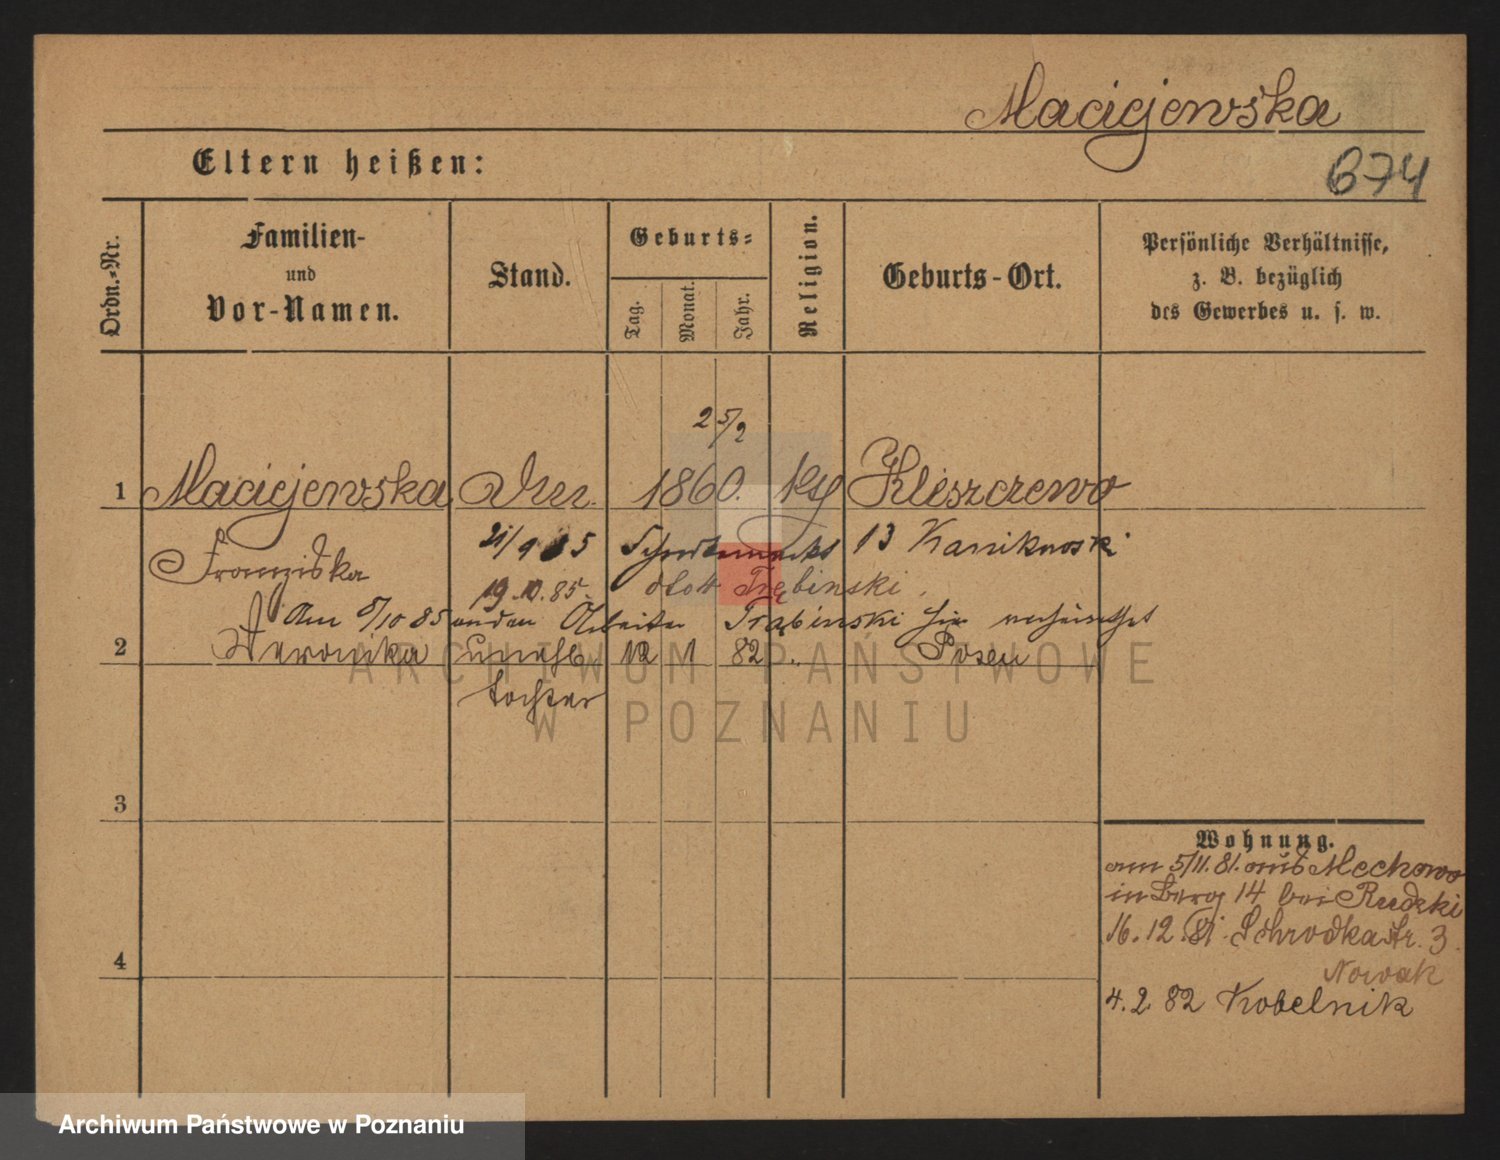 Maciejewska
Eltern heißen:
674
Ordn.-Nr.
Familien-
und
Vor-Namen.
Stand.
Geburts-
Tag.
Monat.
Jahr.
Religion.
Geburts-Ort.
Persönliche Verhältnisse,
z. B. bezüglich
des Gewerbes u. s. w.
25/2
1 Maciejewska 1860. Kleszczewo
Franziska 21/9 85 13 Kanikowski
19.10.85. dto 4 Trąbinski.
Am 8/10 85 an den Arbeiter Trąbinski hier verheirathet
2 Veronika unehl. 12 1 82 " Posen
Tochter
3
4
Wohnung.
am 5/11.81. aus Meckowo
in Berg 14 bei Rudzki
16.12.81. Schrodkastr. 3.
Nowak
4.2.82 Kobelnik
ARCHIWUM PAŃSTWOWE
W POZNANIU
Archiwum Państwowe w Poznaniu